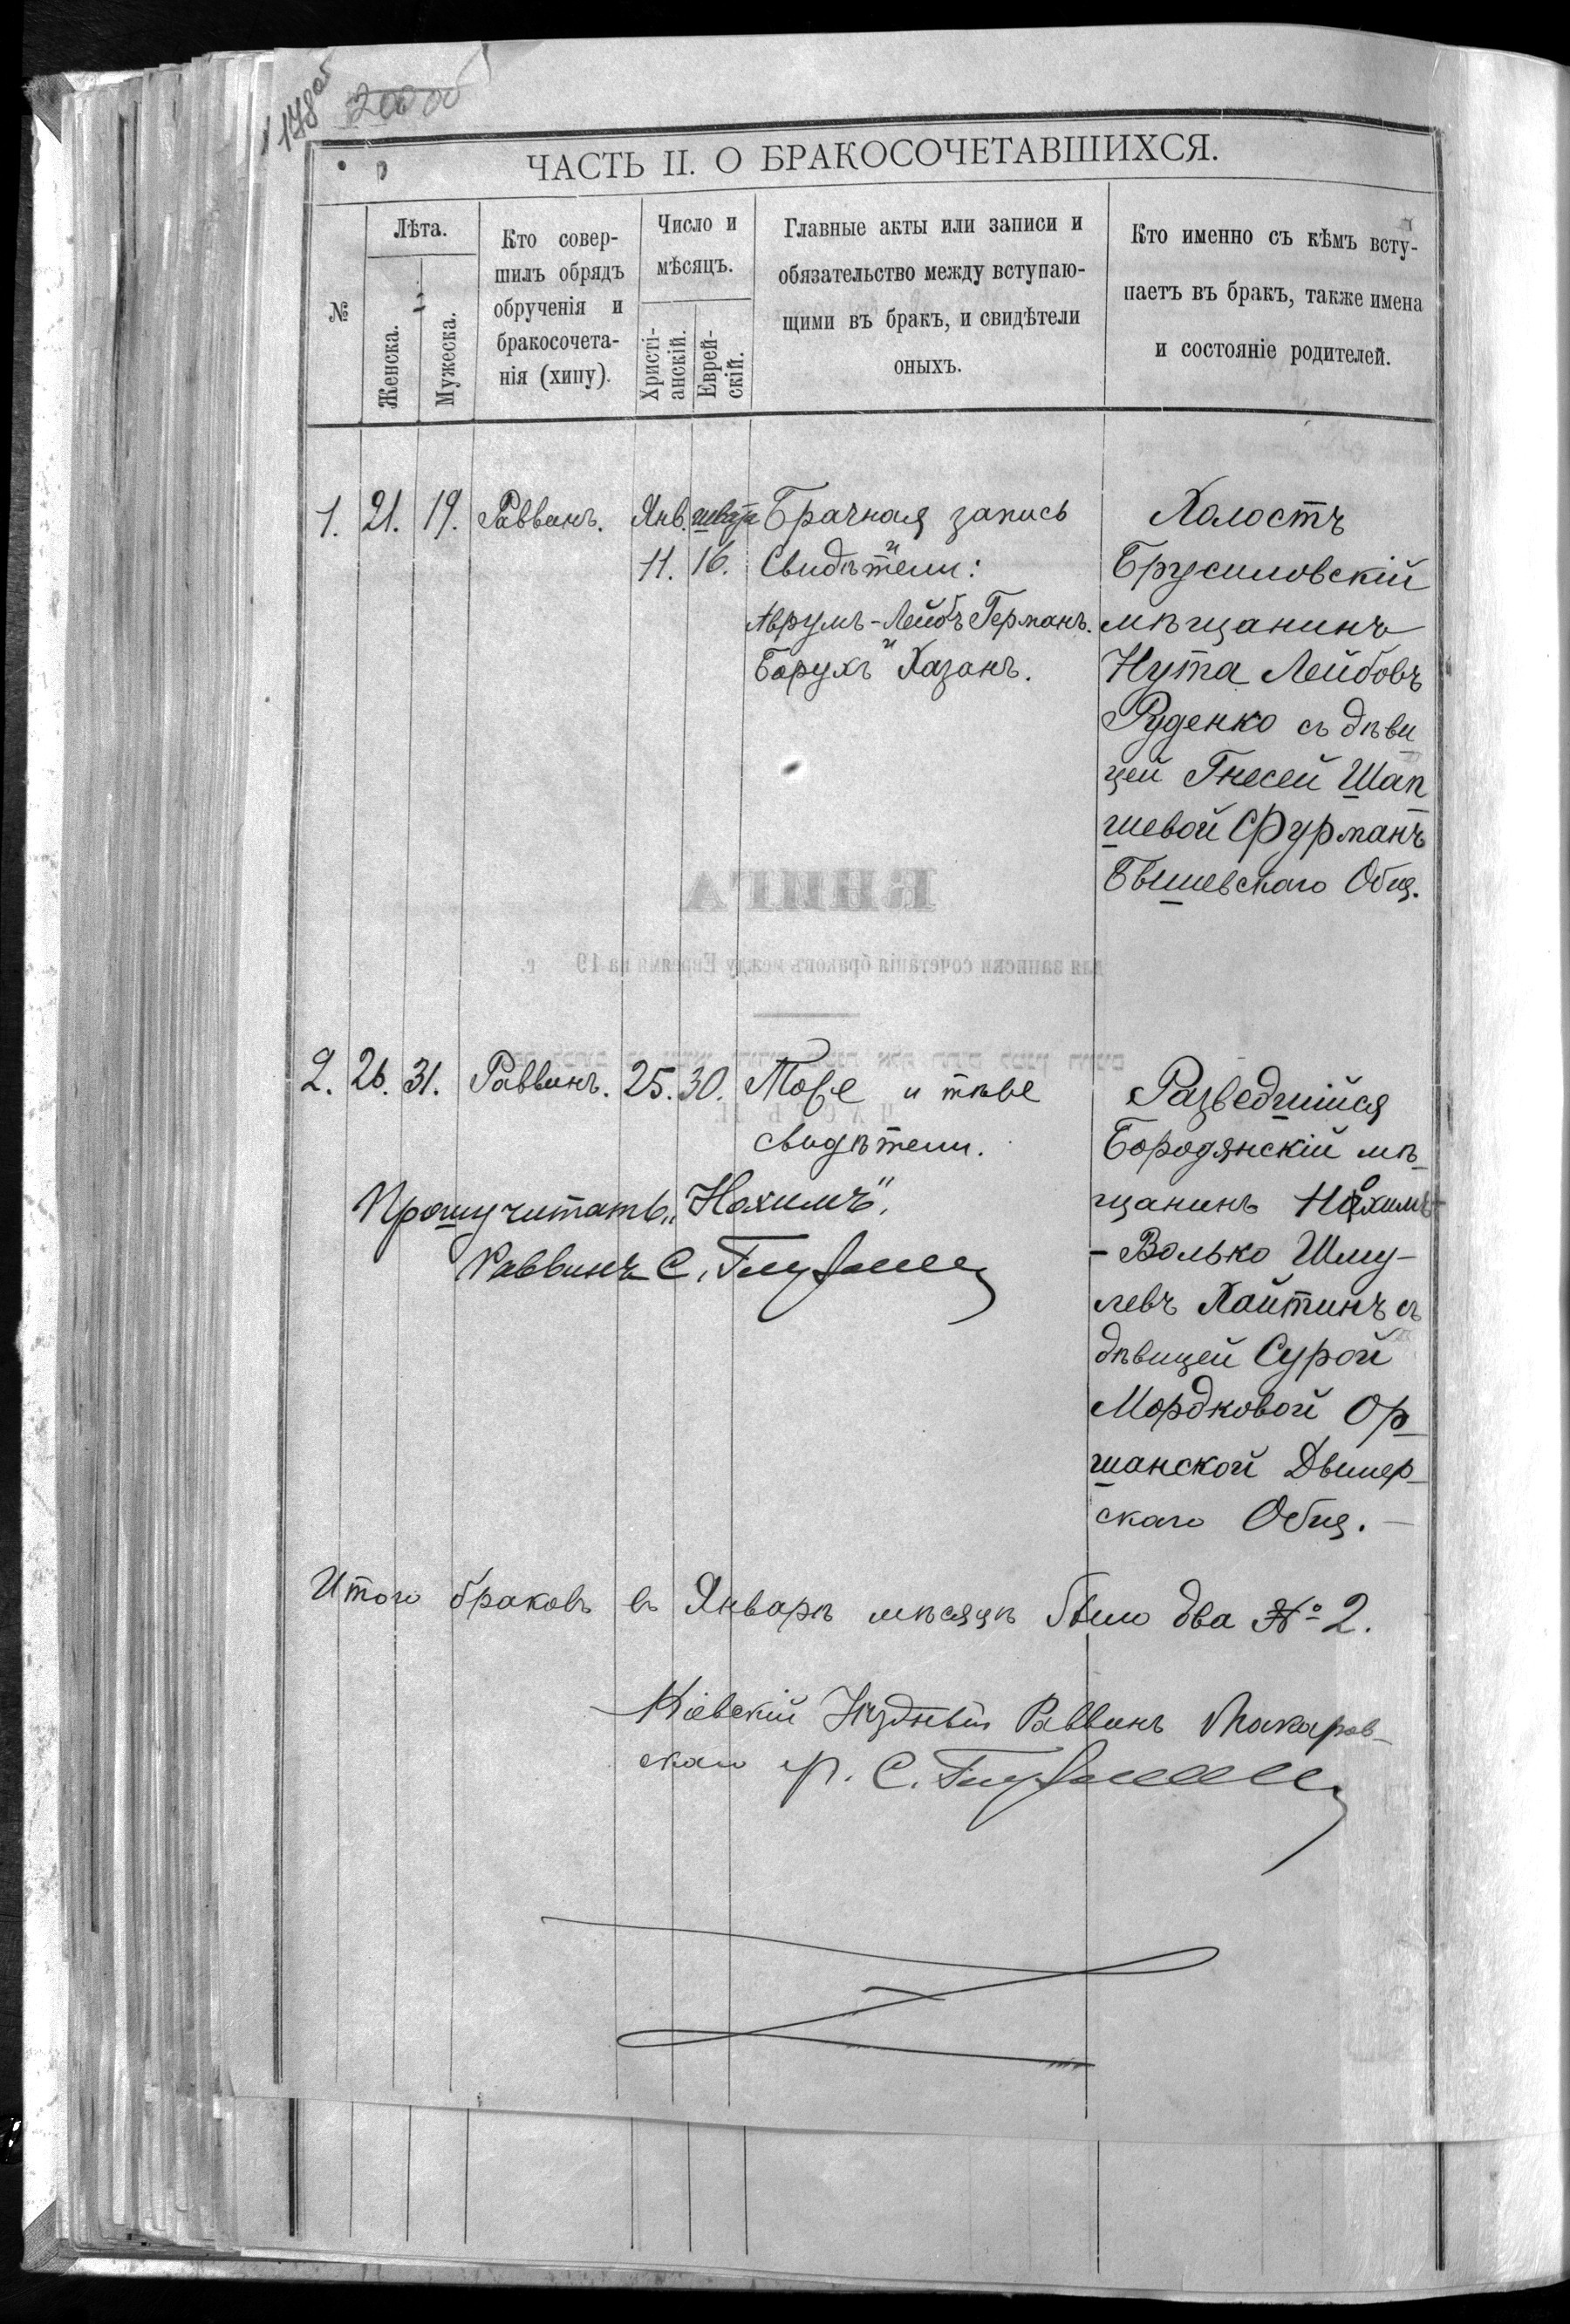 178 об
200 об
ЧАСТЬ II. О БРАКОСОЧЕТАВШИХСЯ.
№
Лѣта.
Женска.
Мужеска.
Кто совер-
шилъ обрядъ
обрученія и
бракосочета-
нія (хипу).
Число и
мѣсяцъ.
Христі-
анскій.
Еврей-
скій.
Главные акты или записи и
обязательство между вступаю-
щими въ бракъ, и свидѣтели
оныхъ.
Кто именно съ кѣмъ всту-
паетъ въ бракъ, также имена
и состояніе родителей.
1. 21. 19. Раввинъ. Янв. 11. шватъ 16.
Брачная запись
и
Свидѣтели:
Аврумъ-Лейбъ Германъ.
и
Борухъ Хазанъ.
Холостъ
Брусиловскій
мѣщанинъ
Нута Лейбовъ
Руденко съ дѣви
цей Гнесей Шап
шевой Фурманъ
Бышевскаго Общ.
КНИГА
для записки сочетанія браковъ между Евреями на 19 г.
2. 26. 31. Раввинъ. 25. 30.
Тоже и тѣже
свидѣтели.
Разведшійся
Бородянскій мѣ-
щанинъ Нохимъ-
- Волько Шму-
левъ Хайтинъ съ
дѣвицей Сурой
Мордковой Ор
шанской Дымер-
скаго Общ. -
Прошу читать „Нохимъ“.
Раввинъ С.
Итого браковъ въ Январѣ мѣсяцѣ было два № 2.
Кіевскій Уѣздный Раввинъ Макаров-
скаго р. С.